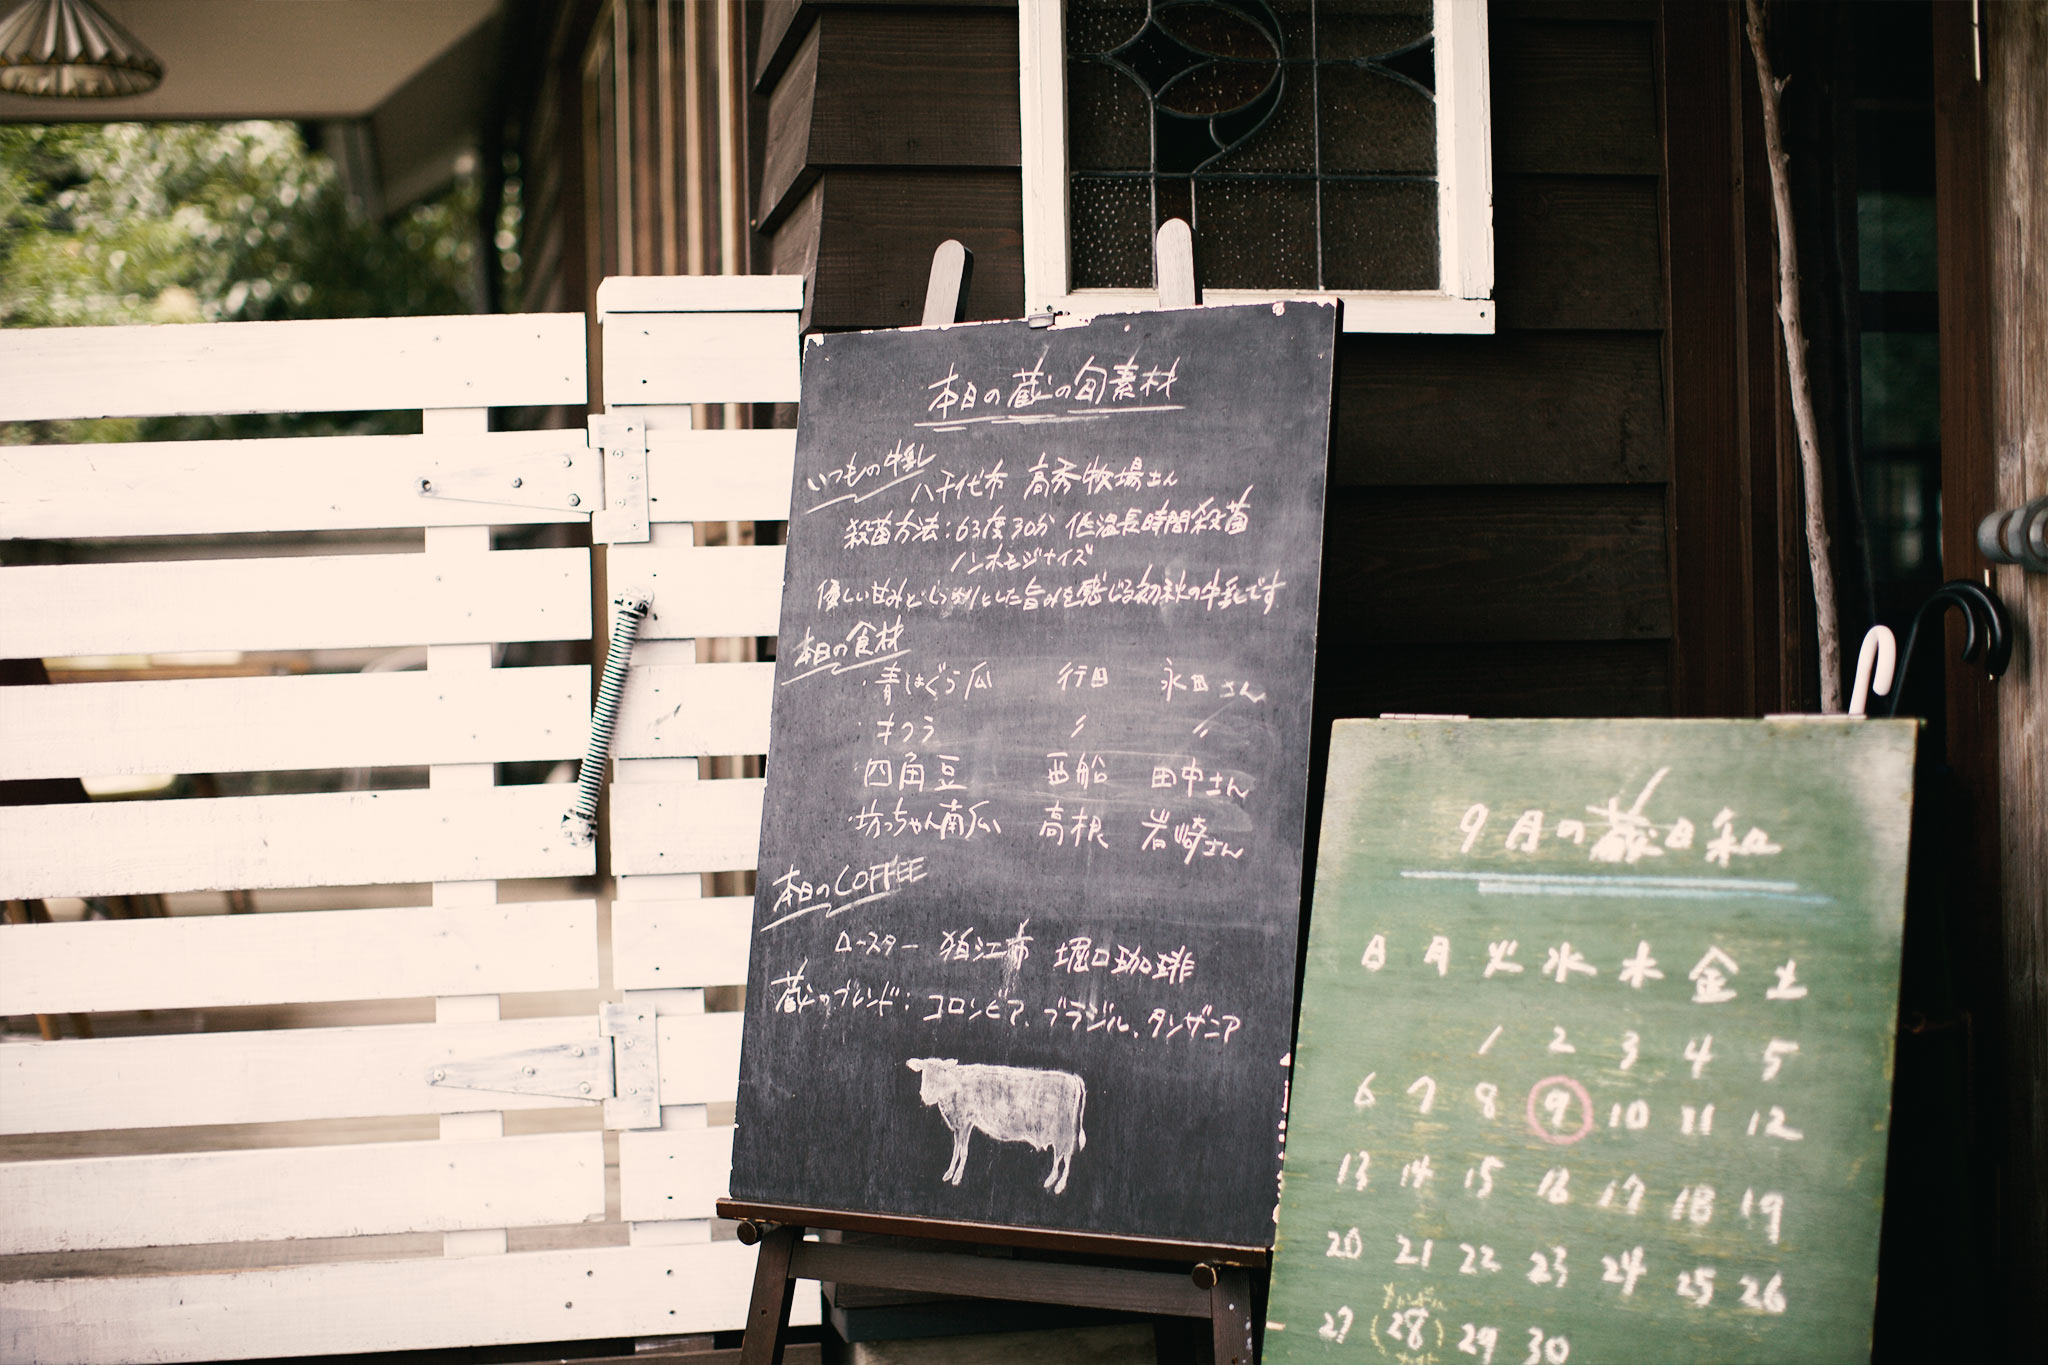 本日の蔵の旬素材
いつもの牛乳
八千代市 高秀牧場さん
殺菌方法:63度30分 低温長時間殺菌
ノンホモジナイズ
優しい甘みとしっかりとした旨みを感じる初秋の牛乳です
本日の食材
・青はぐう瓜 行田 永田さん
・オクラ 〃 〃
・四角豆 西船 田中さん
・坊っちゃん南瓜 高根 岩崎さん
本日のCOFFEE
ロースター 狛江市 堀口珈琲
蔵のブレンド:コロンビア、ブラジル、タンザニア
9月の蔵日和
日 月 火 水 木 金 土
1 2 3 4 5
6 7 8 9 10 11 12
13 14 15 16 17 18 19
20 21 22 23 24 25 26
27 28 29 30